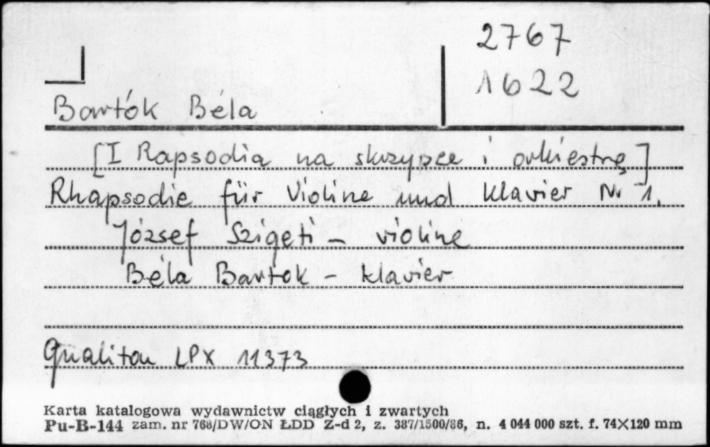 2767
1622
Bartók Béla
[I Rapsodia na skrzypce i orkiestrę]
Rhapsodie für Violine und Klavier Nr 1.
József Szigeti – violine
Béla Bartok – klavier
Qualiton LPX 11373
Karta katalogowa wydawnictw ciągłych i zwartych
Pu-B-144 zam. nr 768/DW/ON ŁDD Z-d 2, z. 387/1500/86, n. 4 044 000 szt. f. 74×120 mm